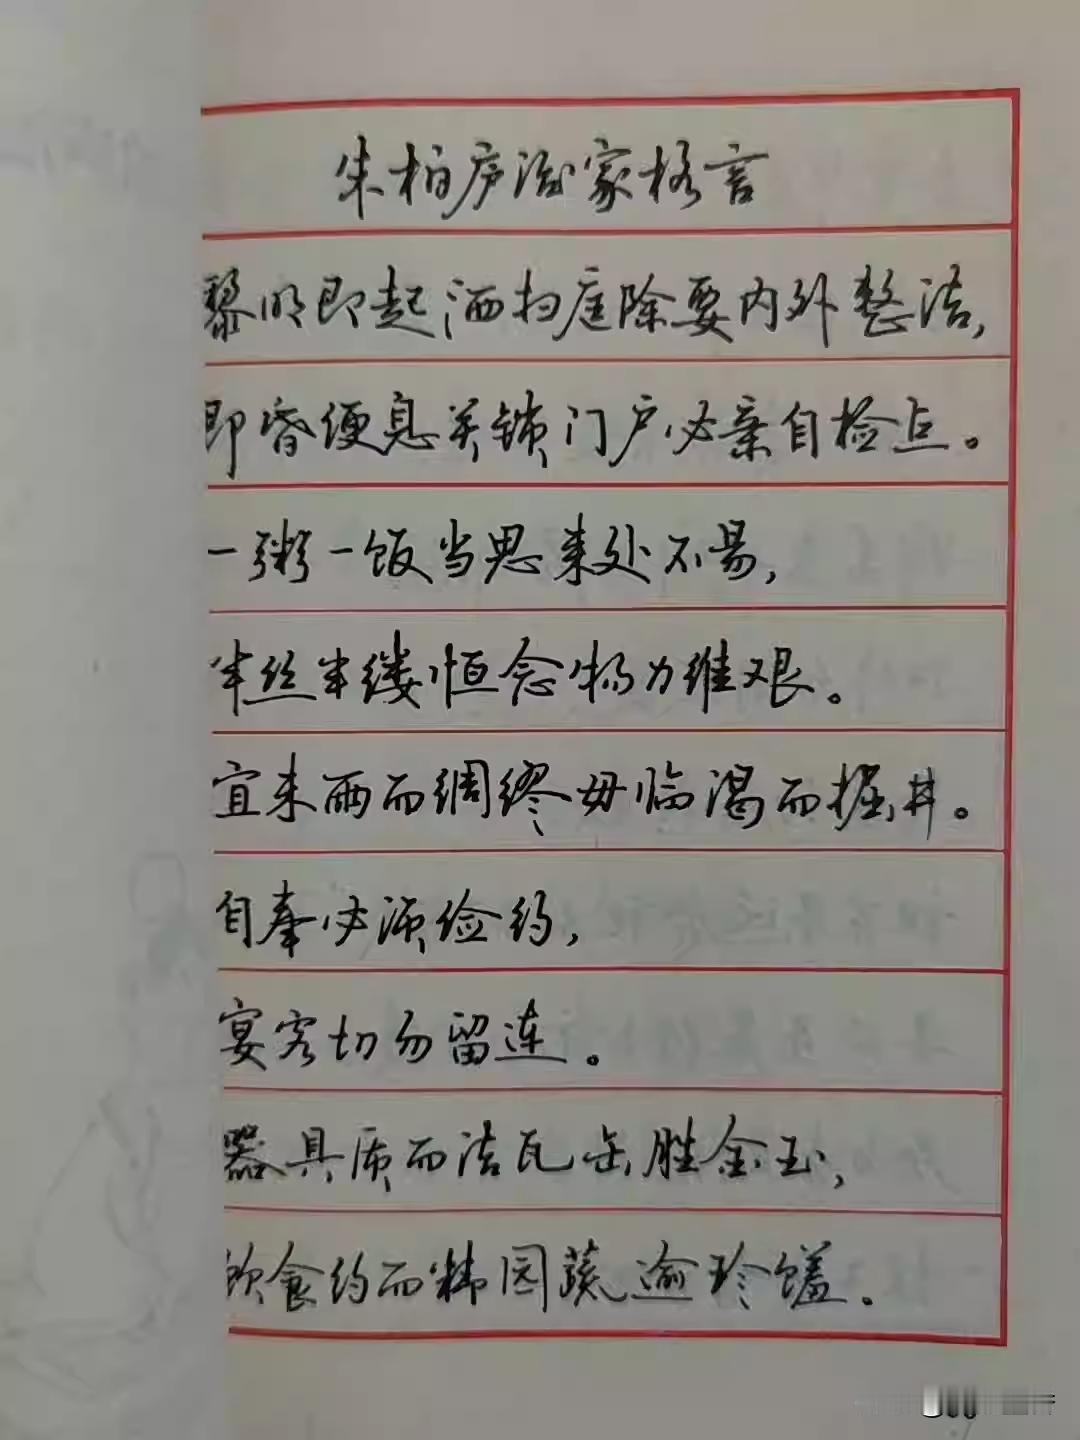 朱柏庐治家格言
黎明即起洒扫庭除要内外整洁，
即昏便息关锁门户必亲自检点。
一粥一饭当思来处不易，
半丝半缕恒念物力维艰。
宜未雨而绸缪毋临渴而掘井。
自奉必须俭约，
宴客切勿留连。
器具质而洁瓦缶胜金玉，
饮食约而精园蔬逾珍馐。